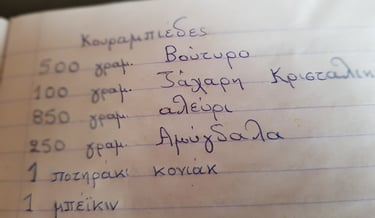 Κουραμπιέδες
500 γραμ. Βούτυρο
100 γραμ. Ζάχαρη Κρισταλικ
850 γραμ. αλεύρι
250 γραμ. Αμύγδαλα
1 ποτηράκι κονιάκ
1 μπέικιν